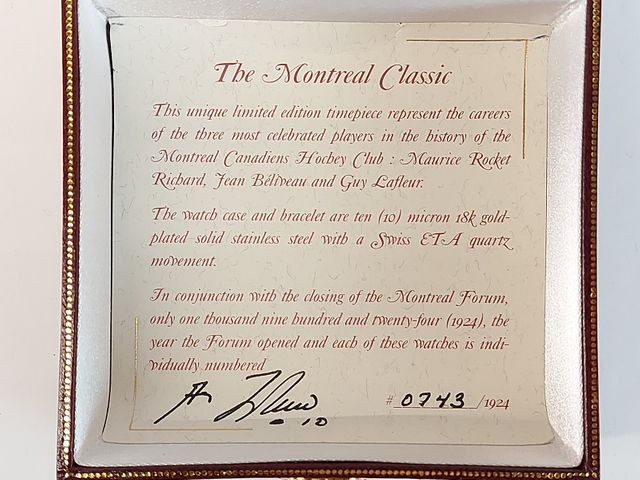 The Montreal Classic
This unique limited edition timepiece represent the careers
of the three most celebrated players in the history of the
Montreal Canadiens Hockey Club : Maurice Rocket
Richard, Jean Béliveau and Guy Lafleur.
The watch case and bracelet are ten (10) micron 18k gold-
plated solid stainless steel with a Swiss ETA quartz
movement.
In conjunction with the closing of the Montreal Forum,
only one thousand nine hundred and twenty-four (1924), the
year the Forum opened and each of these watches is indi-
vidually numbered
10
# 0743 /1924